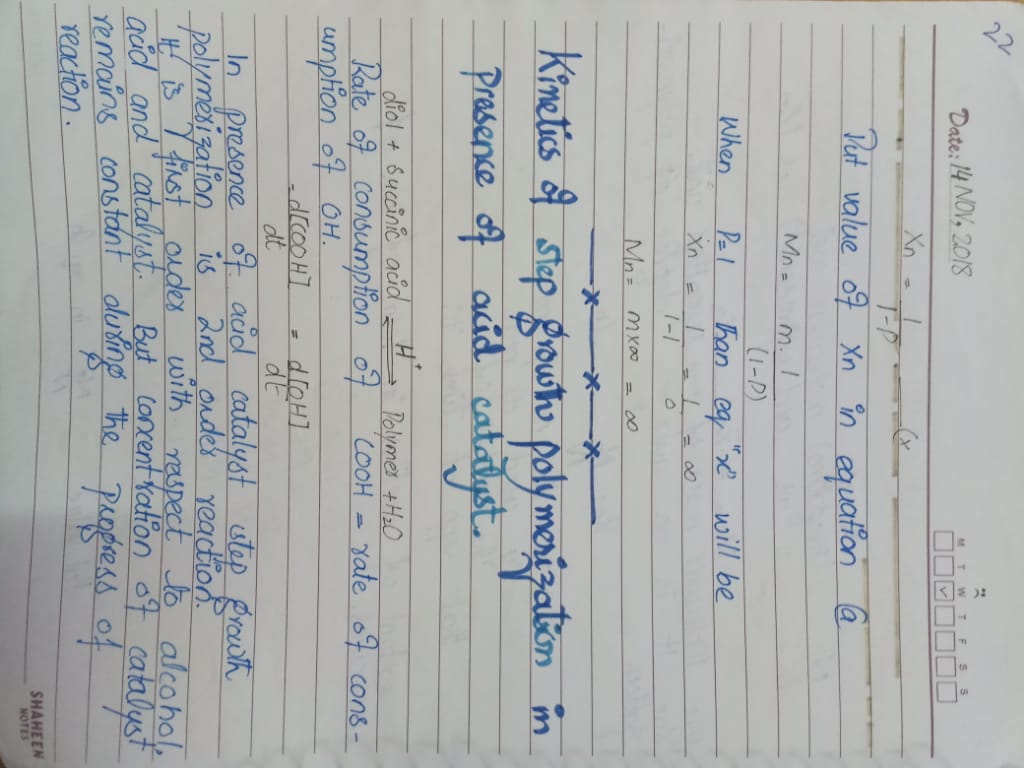 22
Date: 14 NOV, 2018
M T W T F S S
Xn = 1/1-P (x
Put value of Xn in equation (a
Mn = m. 1/(1-P)
When P=1 Than eq "x" will be
Xn = 1/1-1 = 1/0 = ∞
Mn = m×∞ = ∞
Kinetics of step growth polymerization in
Presence of acid catalyst.
diol + Succinic acid ⇌ H+ Polymer + H2O
Rate of consumption of COOH = rate of cons-
umption of OH.
- d[COOH]/dt = d[OH]/dt
In presene of acid catalyst step growth
polymerization is 2nd order reaction.
It is first order with respect to alcohol,
acid and catalyst. But concentration of catalyst
remains constant during the progress of
reaction.
SHAHEEN
NOTES